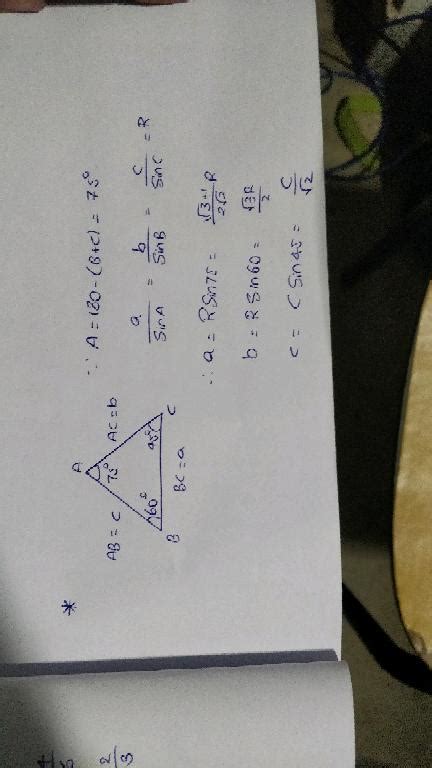 *
A
AB = C
AC = b
75°
60°
45°
B
C
BC = a
∵ A = 180 - (B+C) = 75°
a/SinA = b/SinB = C/SinC = R
∴ a = RSin75 = √3+1/2√2 R
b = RSin60 = √3R/2
C = CSin45 = C/√2
2/3